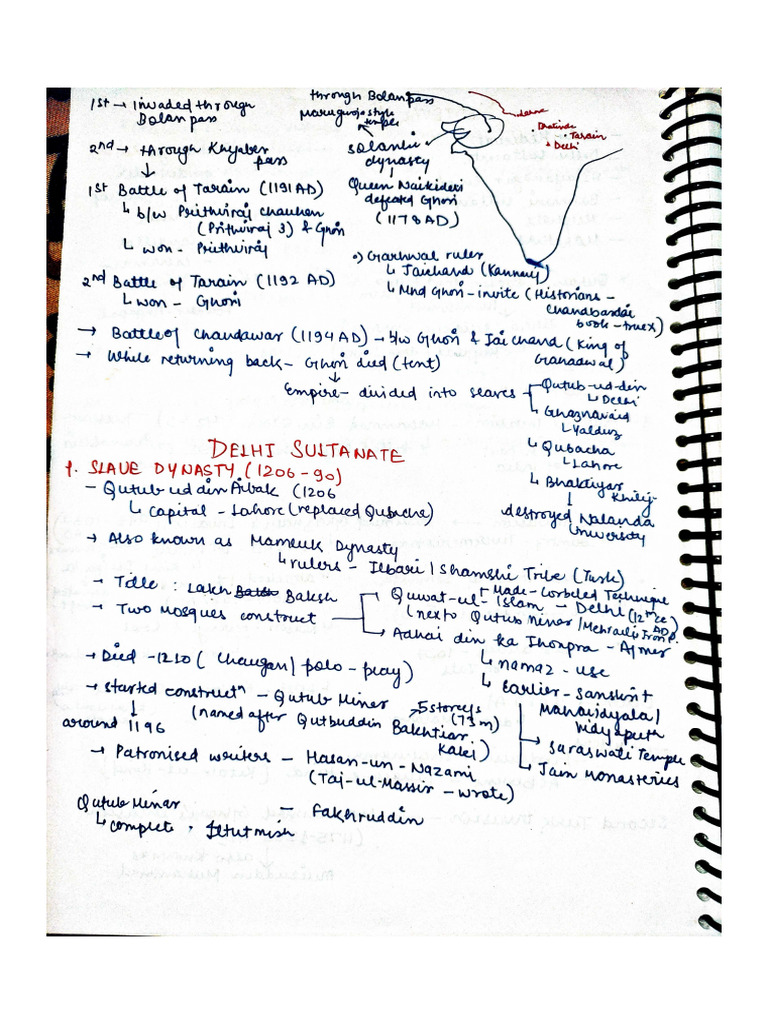 1st → invaded through
Bolan pass
through Bolan pass
Maru gurjara style
temple
Bhatinda
Tarain
Delhi
2nd → through Khyaber
pass
Solanki
dynasty
1st Battle of Tarain (1191 AD)
↳ b/w Prithviraj chauhan
(Prithviraj 3) & Ghori
↳ won - Prithviraj
Queen Naikidevi
defeated Ghori
(1178 AD)
2nd Battle of Tarain (1192 AD)
↳ won - Ghori
Garhwal ruler
↳ Jaichand (Kannauj)
↳ Mhd Ghori - invite (Historians -
Chandbardai
book - true x)
→ Battle of Chandawar (1194 AD) → b/w Ghori & Jai Chand (King of
Grahadwal)
→ While returning back - Ghori died (tent)
↓
Empire - divided into slaves
Qutub-ud-din
↳ Delhi
↳ Ghaznavaid
↳ Yalduz
↳ Qubacha
↳ Lahore
↳ Bhaktiyar Khilji
↓
destroyed Nalanda
University
DELHI SULTANATE
1. SLAVE DYNASTY (1206-90)
- Qutub ud din Aibak (1206
↳ capital - Lahore (replaced Qubacha)
→ Also known as Mameluk Dynasty
↳ rulers - Ilbari / Shamshi Tribe (Turk)
→ Title : Lakh Baksh
→ Two mosques construct
Made - Corbeled Technique
Quwat-ul-Islam - Delhi (12th CE)
(next to Qutub Minar / Mehrauli Iron P. AD
→ Adhai din ka Jhonpra - Ajmer
↳ namaz - use
↳ Earlier - Sanskrit
Mahavidyala /
Vidyapeeth
→ Saraswati Temple
↳ Jain Monasteries
→ Died - 1210 (Chaugan / polo - play)
→ started constructn - Qutub Minar
↓
around 1196
5 storeys
(73 m)
(named after Qutbuddin Bakhtiar
Kaki)
→ Patronised writers - Hasan-un-Nazami
(Taj-ul-Massir - wrote)
- Fakhruddin
Qutub Minar
↳ complete . Iltutmish